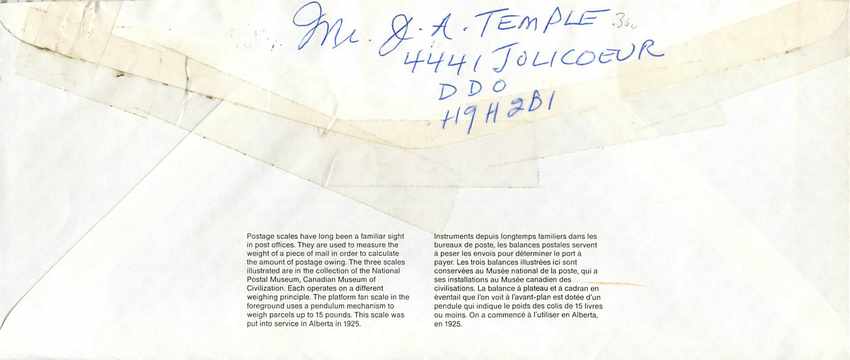 Mr. J. A. TEMPLE
4441 JOLICOEUR
DDO
H9H 2B1
Postage scales have long been a familiar sight
in post offices. They are used to measure the
weight of a piece of mail in order to calculate
the amount of postage owing. The three scales
illustrated are in the collection of the National
Postal Museum, Canadian Museum of
Civilization. Each operates on a different
weighing principle. The platform fan scale in the
foreground uses a pendulum mechanism to
weigh parcels up to 15 pounds. This scale was
put into service in Alberta in 1925.
Instruments depuis longtemps familiers dans les
bureaux de poste, les balances postales servent
à peser les envois pour déterminer le port à
payer. Les trois balances illustrées ici sont
conservées au Musée national de la poste, qui a
ses installations au Musée canadien des
civilisations. La balance à plateau et à cadran en
éventail que l'on voit à l'avant-plan est dotée d'un
pendule qui indique le poids des colis de 15 livres
ou moins. On a commencé à l'utiliser en Alberta,
en 1925.